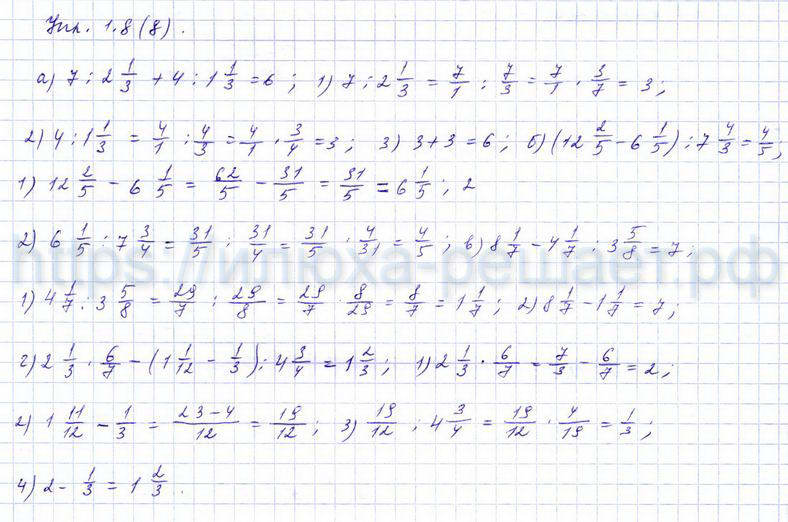 Упр. 1.8(8).
а) 7 : 2 1/3 + 4 : 1 1/3 = 6 ; 1) 7 : 2 1/3 = 7/1 : 7/3 = 7/1 · 3/7 = 3 ;
2) 4 : 1 1/3 = 4/1 : 4/3 = 4/1 · 3/4 = 3 ; 3) 3 + 3 = 6 ; б) (12 2/5 - 6 1/5) : 7 4/3 = 4/5 ;
1) 12 2/5 - 6 1/5 = 62/5 - 31/5 = 31/5 = 6 1/5 ; 2
2) 6 1/5 : 7 3/4 = 31/5 : 31/4 = 31/5 · 4/31 = 4/5 ; в) 8 1/7 - 4 1/7 : 3 5/8 = 7 ;
https://илюха-решает.рф
1) 4 1/7 : 3 5/8 = 29/7 : 29/8 = 29/7 · 8/29 = 8/7 = 1 1/7 ; 2) 8 1/7 - 1 1/7 = 7 ;
г) 2 1/3 · 6/7 - (1 1/12 - 1/3) : 4 3/4 = 1 2/3 ; 1) 2 1/3 · 6/7 = 7/3 - 6/7 = 2 ;
2) 1 11/12 - 1/3 = 23-4/12 = 19/12 ; 3) 19/12 : 4 3/4 = 19/12 · 4/19 = 1/3 ;
4) 2 - 1/3 = 1 2/3 .